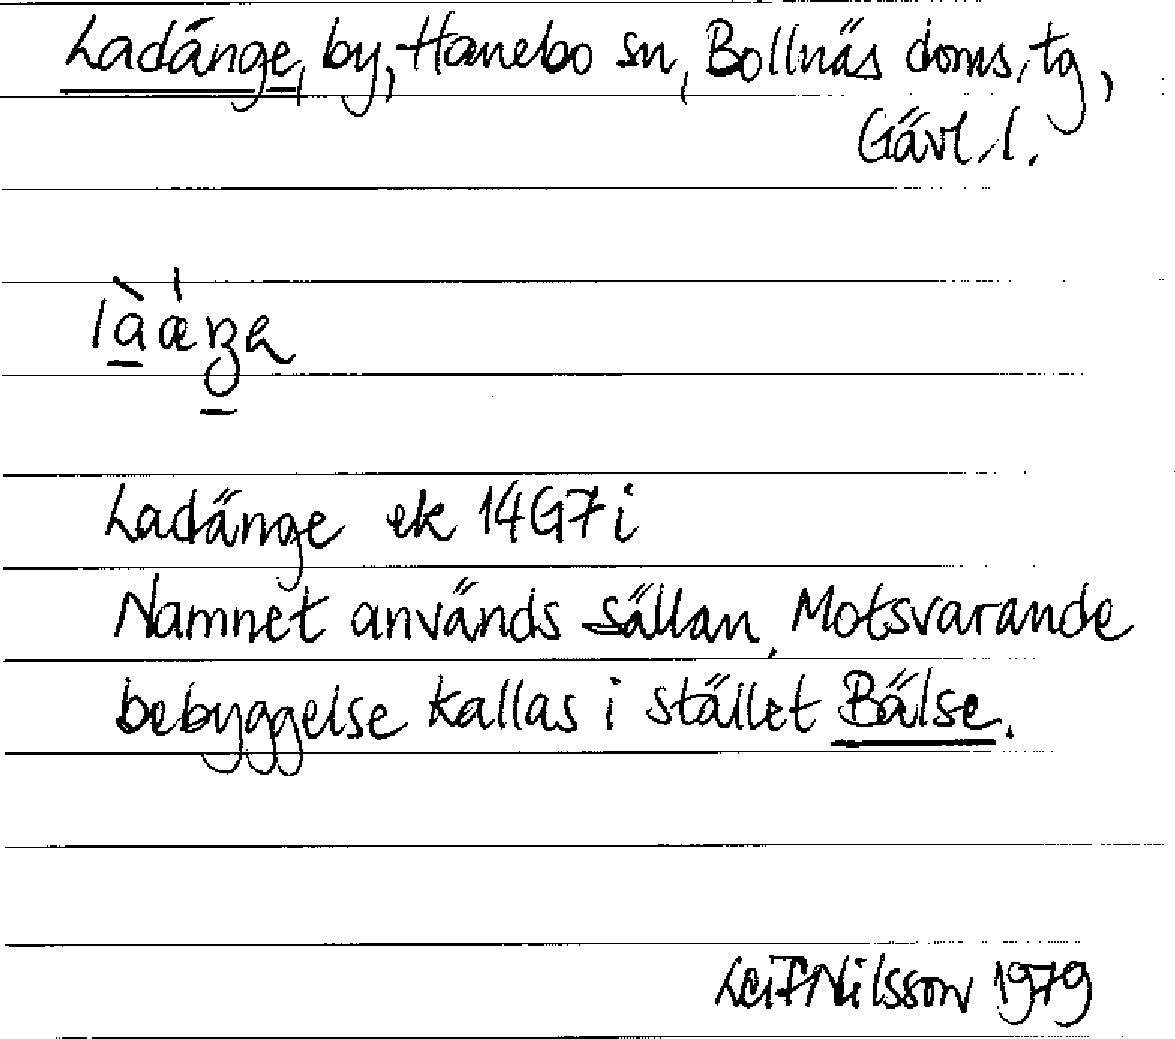 Ladänge, by, Hanebo sn, Bollnäs doms. tg,
Gävl. l.
Ladänge ek 14G7i
Namnet används sällan. Motsvarande
bebyggelse kallas i stället Bälse.
Leif Nilsson 1979